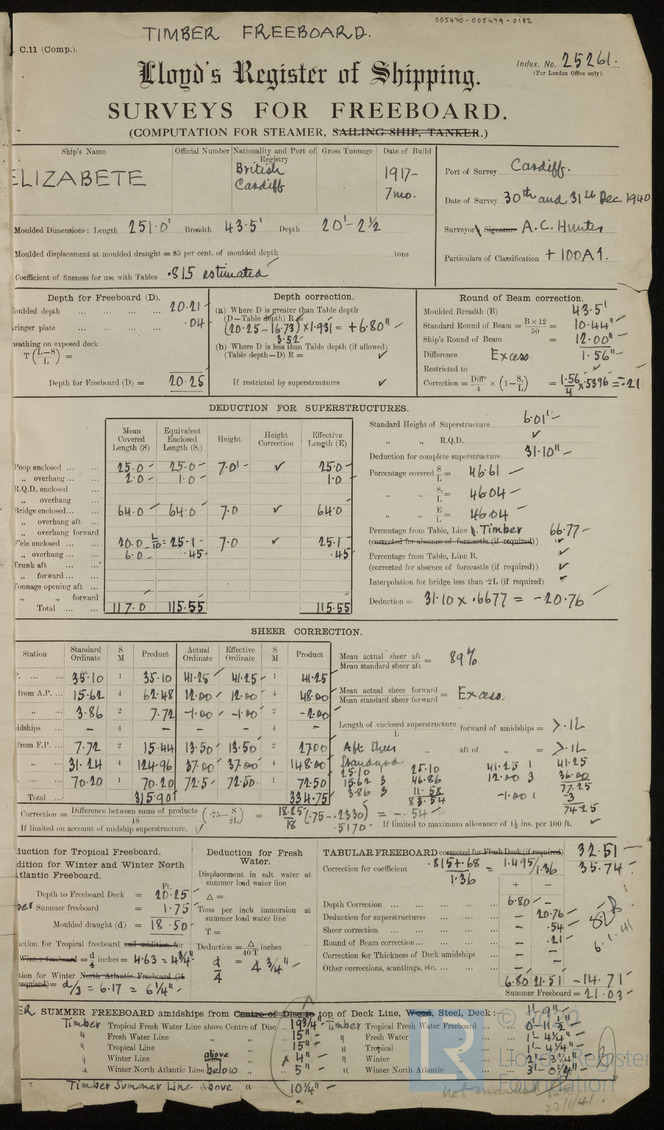 005490-005499-0182
TIMBER FREEBOARD.
C.11 (Comp.).
Index. No. 25261.
(For London Office only).
Lloyd's Register of Shipping.
SURVEYS FOR FREEBOARD.
(COMPUTATION FOR STEAMER, SAILING SHIP, TANKER.)
Ship's Name Official Number Nationality and Port of Registry Gross Tonnage Date of Build
ELIZABETE British Cardiff 1917- 7mo.
Port of Survey Cardiff.
Date of Survey 30th and 31st Dec 1940
Surveyor's Signature A.C. Hunter
Particulars of Classification +100A1.
Moulded Dimensions: Length 251.0' Breadth 43.5' Depth 20'-2½
Moulded displacement at moulded draught = 85 per cent. of moulded depth tons
Coefficient of fineness for use with Tables .815 estimated
Depth for Freeboard (D). Depth correction. Round of Beam correction.
Moulded depth 20.21
Stringer plate .04
Sheathing on exposed deck
T (L-S/L) =
Depth for Freeboard (D) = 20.25
(a) Where D is greater than Table depth
(D—Table depth) R =
(20.25-16.73) × 1.931 = +6.80"
3.52
(b) Where D is less than Table depth (if allowed)
(Table depth—D) R =
If restricted by superstructures
Moulded Breadth (B) 43.5'
Standard Round of Beam = B × 12/50 = 10.44"
Ship's Round of Beam = 12.00"
Difference Excess 1.56"
Restricted to
Correction = Diff/4 × (1-S₁/L) = 1.56/4 × .5396 = -.21
DEDUCTION FOR SUPERSTRUCTURES.
Mean Covered Length (S) Equivalent Enclosed Length (S₁) Height Height Correction Effective Length (E)
Poop enclosed 25.0 25.0 7.0' ✓ 25.0
„ overhang 2.0 1.0 1.0
R.Q.D. enclosed
„ overhang
Bridge enclosed 64.0 64.0 7.0 ✓ 64.0
„ overhang aft
„ overhang forward
F'cle enclosed 20.0 L/10 = 25.1 7.0 ✓ 25.1
„ overhang 6.0 .45 .45
Trunk aft
„ forward
Tonnage opening aft
„ „ forward
Total 117.0 115.55 115.55
Standard Height of Superstructure 6.01'
„ „ R.Q.D. ✓
Deduction for complete superstructure 31.10"
Percentage covered S/L = 46.61
„ „ S₁/L = 46.04
„ „ E/L = 46.04
Percentage from Table, Line Timber 66.77
(corrected for absence of forecastle (if required)) ✓
Percentage from Table, Line B.
(corrected for absence of forecastle (if required)) ✓
Interpolation for bridge less than ·2L (if required) ✓
Deduction = 31.10 × .6677 = -20.76
SHEER CORRECTION.
Station Standard Ordinate S M Product Actual Ordinate Effective Ordinate S M Product
35.10 1 35.10 41.25 41.25 1 41.25
from A.P. 15.62 4 62.48 12.00 12.00 4 48.00
„ 3.86 2 7.72 -1.00 -1.00 2 -2.00
Amidships - 4 - - - 4 -
from F.P. 7.72 2 15.44 13.50 13.50 2 27.00
„ 31.24 4 124.96 37.00 37.00 4 148.00
70.20 1 70.20 72.5 72.50 1 72.50
Total 315.90 334.75
Mean actual sheer aft / Mean standard sheer aft = 89%
Mean actual sheer forward / Mean standard sheer forward = Excess
Length of enclosed superstructure/L forward of amidships = >.1L
„ „ aft of „ = >.1L
Aft Sheer
Standard
25.10 25.10 41.25 1 41.25
15.62 3 46.86 12.00 3 36.00
3.86 3 11.58 77.25
83.54 -1.00 -3
74.25
Correction = Difference between sums of products/18 (·75-S/2L) = 18.85/18 (.75-.2330) = -.54
.5170
If limited on account of midship superstructure. ✓ If limited to maximum allowance of 1½ ins. per 100 ft. ✓
Deduction for Tropical Freeboard.
Addition for Winter and Winter North Atlantic Freeboard.
Ft.
Depth to Freeboard Deck = 20.25
Summer freeboard = 1.75
Moulded draught (d) = 18.50
Deduction for Tropical freeboard and addition for
Winter freeboard = d/4 inches = 4.63 = 4¾"
Addition for Winter North Atlantic Freeboard (if required) = d/3 = 6.17 = 6¼"
Deduction for Fresh Water.
Displacement in salt water at summer load water line
Δ =
Tons per inch immersion at summer load water line
T =
Deduction = Δ/40T inches
d/4 = 4¾"
TABULAR FREEBOARD corrected for Flush Deck (if required) 32.51
Correction for coefficient .815+.68/1.36 = 1.495/1.36 35.74
+ -
Depth Correction 6.80 -
Deduction for superstructures - 20.76
Sheer correction - .54
Round of Beam correction - .21
Correction for Thickness of Deck amidships - -
Other corrections, scantlings, etc. - -
6.80 21.51 -14.71
Summer Freeboard = 21.03
6.1.41
SUMMER FREEBOARD amidships from Centre of Disc to top of Deck Line, Wood, Steel, Deck: 1'-9"
Timber Tropical Fresh Water Line above Centre of Disc 19¾" Timber Tropical Fresh Water Freeboard 0'-11½"
„ Fresh Water Line „ „ 15" „ Fresh Water „ 1'-4¼"
„ Tropical Line „ „ 15" „ Tropical „ 1'-4¼"
„ Winter Line above „ 4" „ Winter „
„ Winter North Atlantic Line below „ 5" „ Winter North Atlantic „
Timber Summer Line above „ 10¼"
Lloyd's Register
Foundation